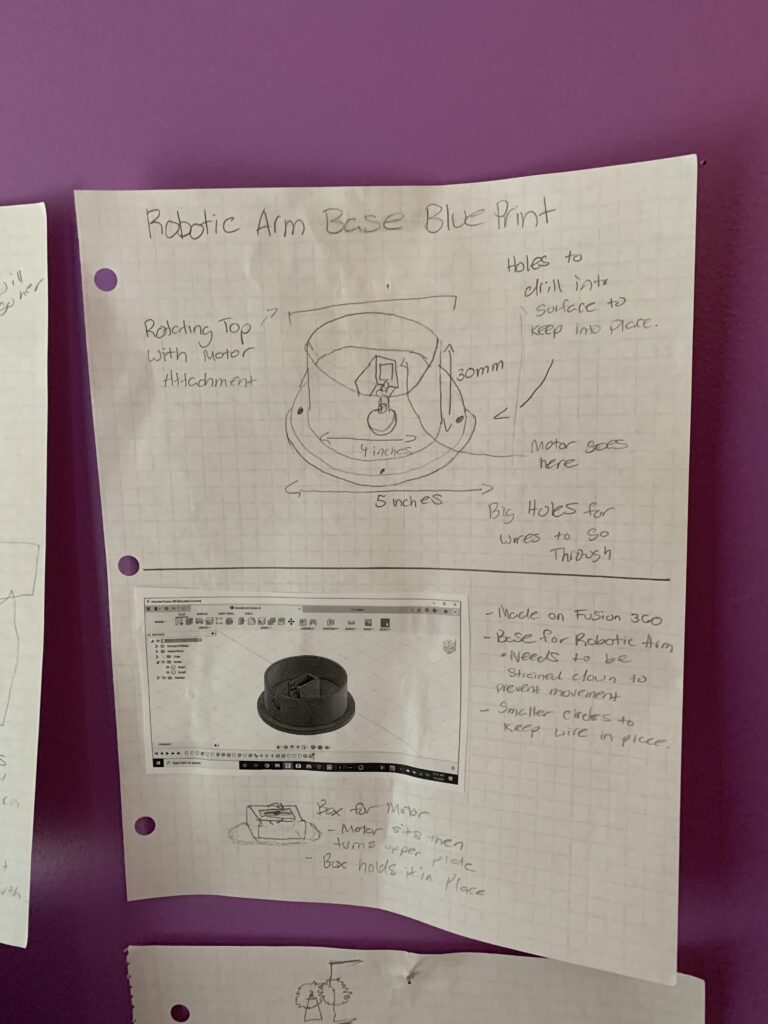 Robotic Arm Base Blue Print
Holes to
drill into
surface to
keep into place.
Rotating Top
with Motor
Attachment
30mm
4 inches
Motor goes
here
5 inches
Big Holes for
wires to go
Through
- Made on Fusion 360
- Base for Robotic Arm
• Needs to be
down to
prevent movement
- Smaller circles to
keep wire in place.
Box for Motor
- Motor sits then
turns upper plate
- Box holds it in place